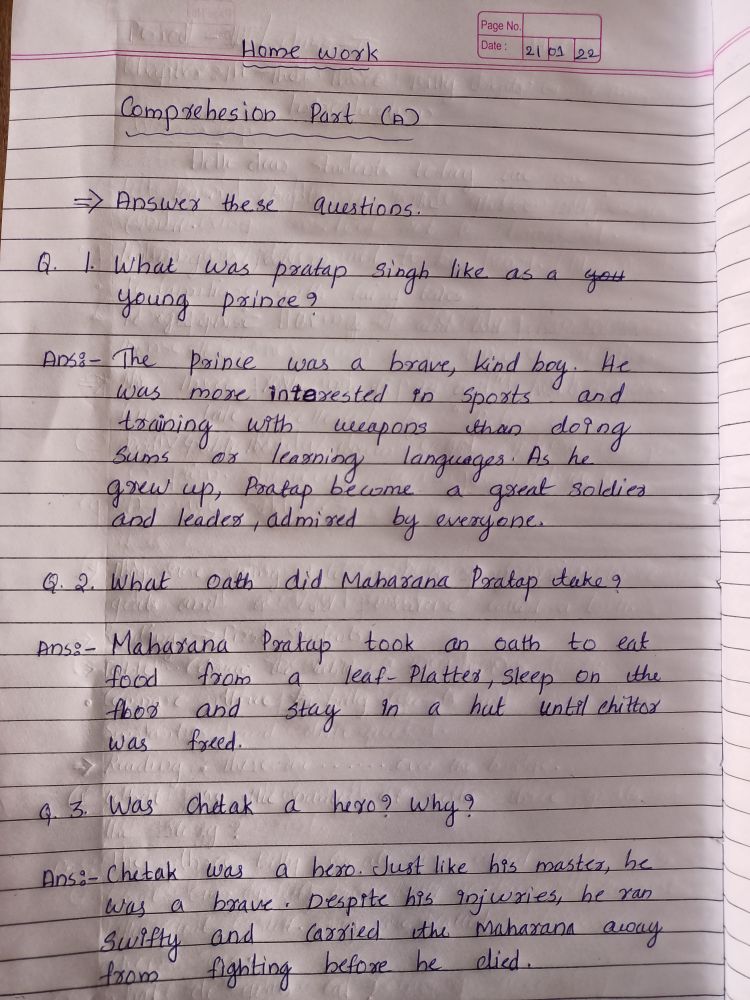 Page No.
Date: 21 01 22
Home work
Comprehesion Part (A)
⇒ Answer these questions.
Q. 1. What was pratap singh like as a you
young prince?
Ans:- The prince was a brave, kind boy. He
was more interested in sports and
training with weapons than doing
sums or learning languages. As he
grew up, Pratap become a great soldier
and leader, admired by everyone.
Q. 2. What oath did Maharana Pratap take?
Ans:- Maharana Pratap took an oath to eat
food from a leaf-Platter, sleep on the
floor and stay in a hut until chittor
was freed.
Q. 3. Was Chetak a hero? Why?
Ans:- Chetak was a hero. Just like his master, he
was a brave. Despite his injuries, he ran
swifty and carried the Maharana away
from fighting before he died.